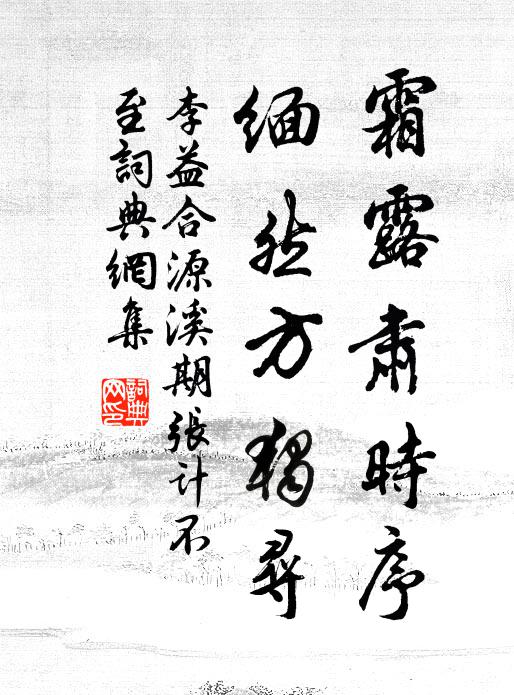 霜露肅時序
緬然方獨尋
李益合源溪期張計不
至詞典網集
詞典網印